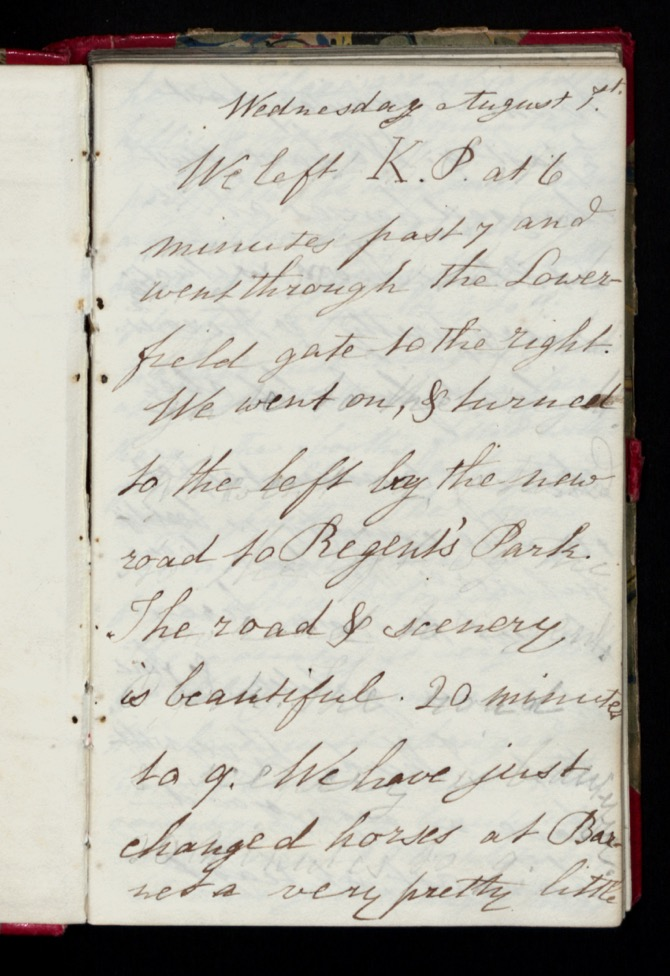 Wednesday August 1st.
We left K.P. at 6
minutes past 7 and
went through the Lower-
field gate to the right.
We went on, & turned
to the left by the new
road to Regent's Park.
The road & scenery
is beautiful. 20 minutes
to 9. We have just
changed horses at Bar-
net a very pretty little